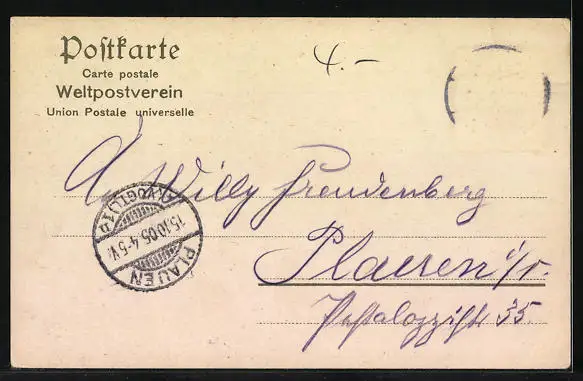 Poſtkarte
Carte postale
Weltpostverein
Union Postale universelle
4.-
A. Willy Freudenberg
Plauen i/v.
Pestalozzistr 35.
PLAUEN
(VOGTL)1a
15.10.05.4-5V.